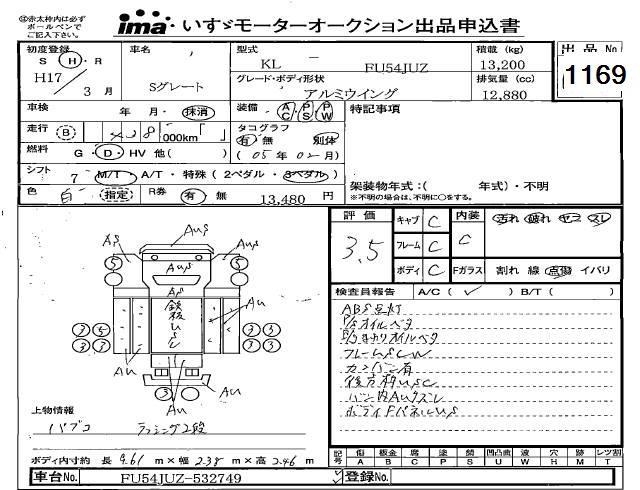 ※赤太枠内は必ず
ボールペンで
ご記入下さい。
ima いすゞモーターオークション出品申込書
初度登録 車名 型式 積載 (kg) 出品 No
S H・R KL － FU54JUZ 13,200
H17 3月 Sグレート グレード・ボディ形状 排気量 (cc) 1169
アルミウイング 12,880
車検 年 月・抹消 装備 AC PS PW 特記事項
走行 B 000km「 」 タコグラフ
有・無 別体
燃料 G・D・HV 他( ) (05年02月)
シフト 7 M/T・A/T・特殊(2ペダル・3ペダル) 架装物年式:( 年式)・不明
色 白 指定 R券 有・無 13,480 円 ※不明の場合は、不明に○をする。
評価 キャブ C 内装 汚れ 破れ ヤニ スレ
3.5 フレーム C C
ボディ C Fガラス 割れ 線 点傷 イバリ
検査員報告 A/C( ✓ ) B/T( )
ABS点灯
P/Sオイルベタ
フレームSCW
カンバン有
後方枠USC
バン内AUズレ
ボディFパネルUS
Aus
As
Aus
⑤ Aus ⑤
As
鉄板USC
Au
③⑤ ③③
Au Au
③
Au
上物情報
パブコ ラッシング2段
ボディ内寸約 長 9.61 m×幅 2.38 m×高 2.46 m
記号 傷 板金 腐 塗 錆 凹凸曲 波 穴 跡 レツ割
A B C P S U W H M T
車台No. FU54JUZ-532749 登録No.